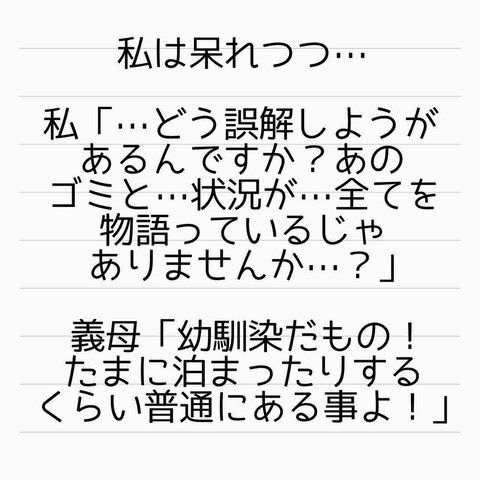 私は呆れつつ…
私「…どう誤解しようが
あるんですか？あの
ゴミと…状況が…全てを
物語っているじゃ
ありませんか…？」
義母「幼馴染だもの！
たまに泊まったりする
くらい普通にある事よ！」